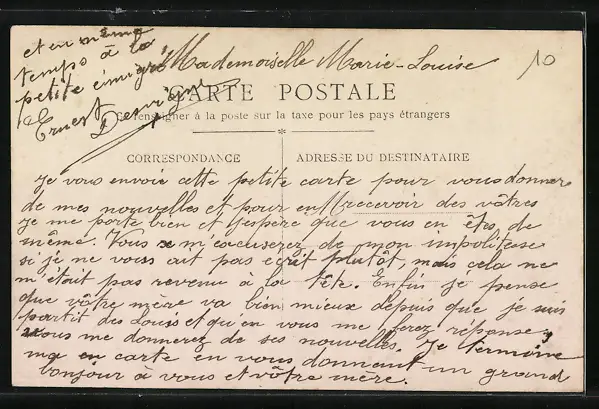 Mademoiselle Marie-Louise
10
CARTE POSTALE
Se renseigner à la poste sur la taxe pour les pays étrangers
CORRESPONDANCE
ADRESSE DU DESTINATAIRE
Je vous envoie cette petite carte pour vous donner
de mes nouvelles et pour en recevoir des vôtres
Je me porte bien et j'espère que vous en êtes de
même. Vous m'excuserez de mon impolitesse
si je ne vous ait pas écrit plutôt, mais cela ne
m'était pas revenu à la tête. Enfin je pense
que vôtre mère va bien mieux depuis que je suis
partit des Louis et qu'en vous me ferez réponse,
vous me donnerez de ses nouvelles. Je termine
ma en carte en vous donnant un grand
bonjour à vous et vôtre mère.
et en même
temps à la
petite émigré
Ernest